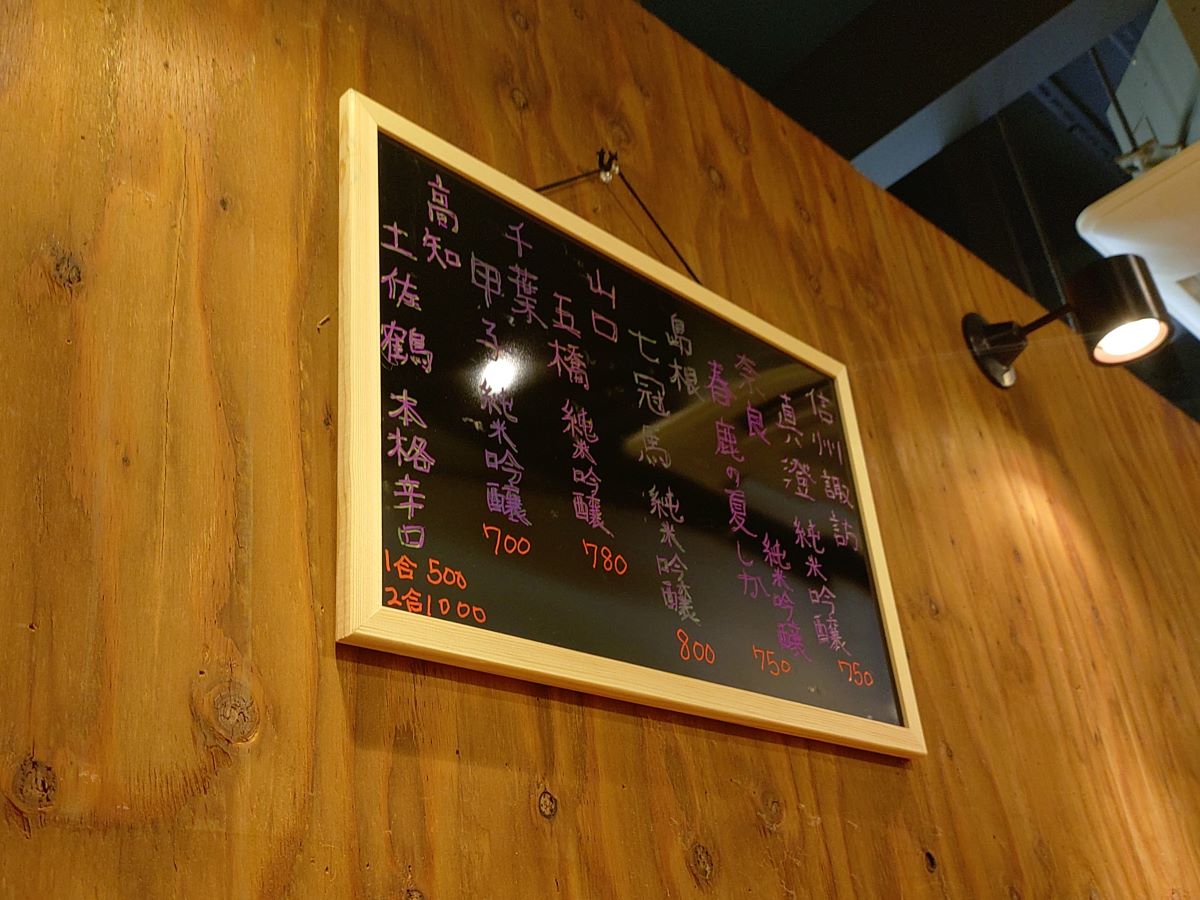 信州諏訪
真澄 純米吟醸
750
奈良
春鹿の夏しか
純米吟醸
750
島根
七冠馬 純米吟醸
800
山口
五橋 純米吟醸
780
千葉
甲子 純米吟醸
700
高知
土佐鶴 本格辛口
1合500
2合1000